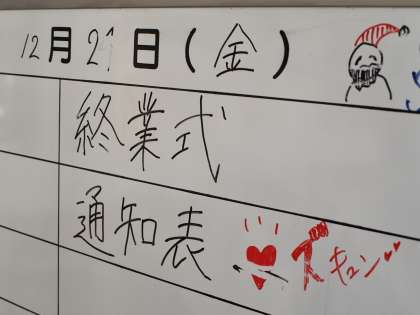 12月21日(金)
終業式
通知表 ズキュン